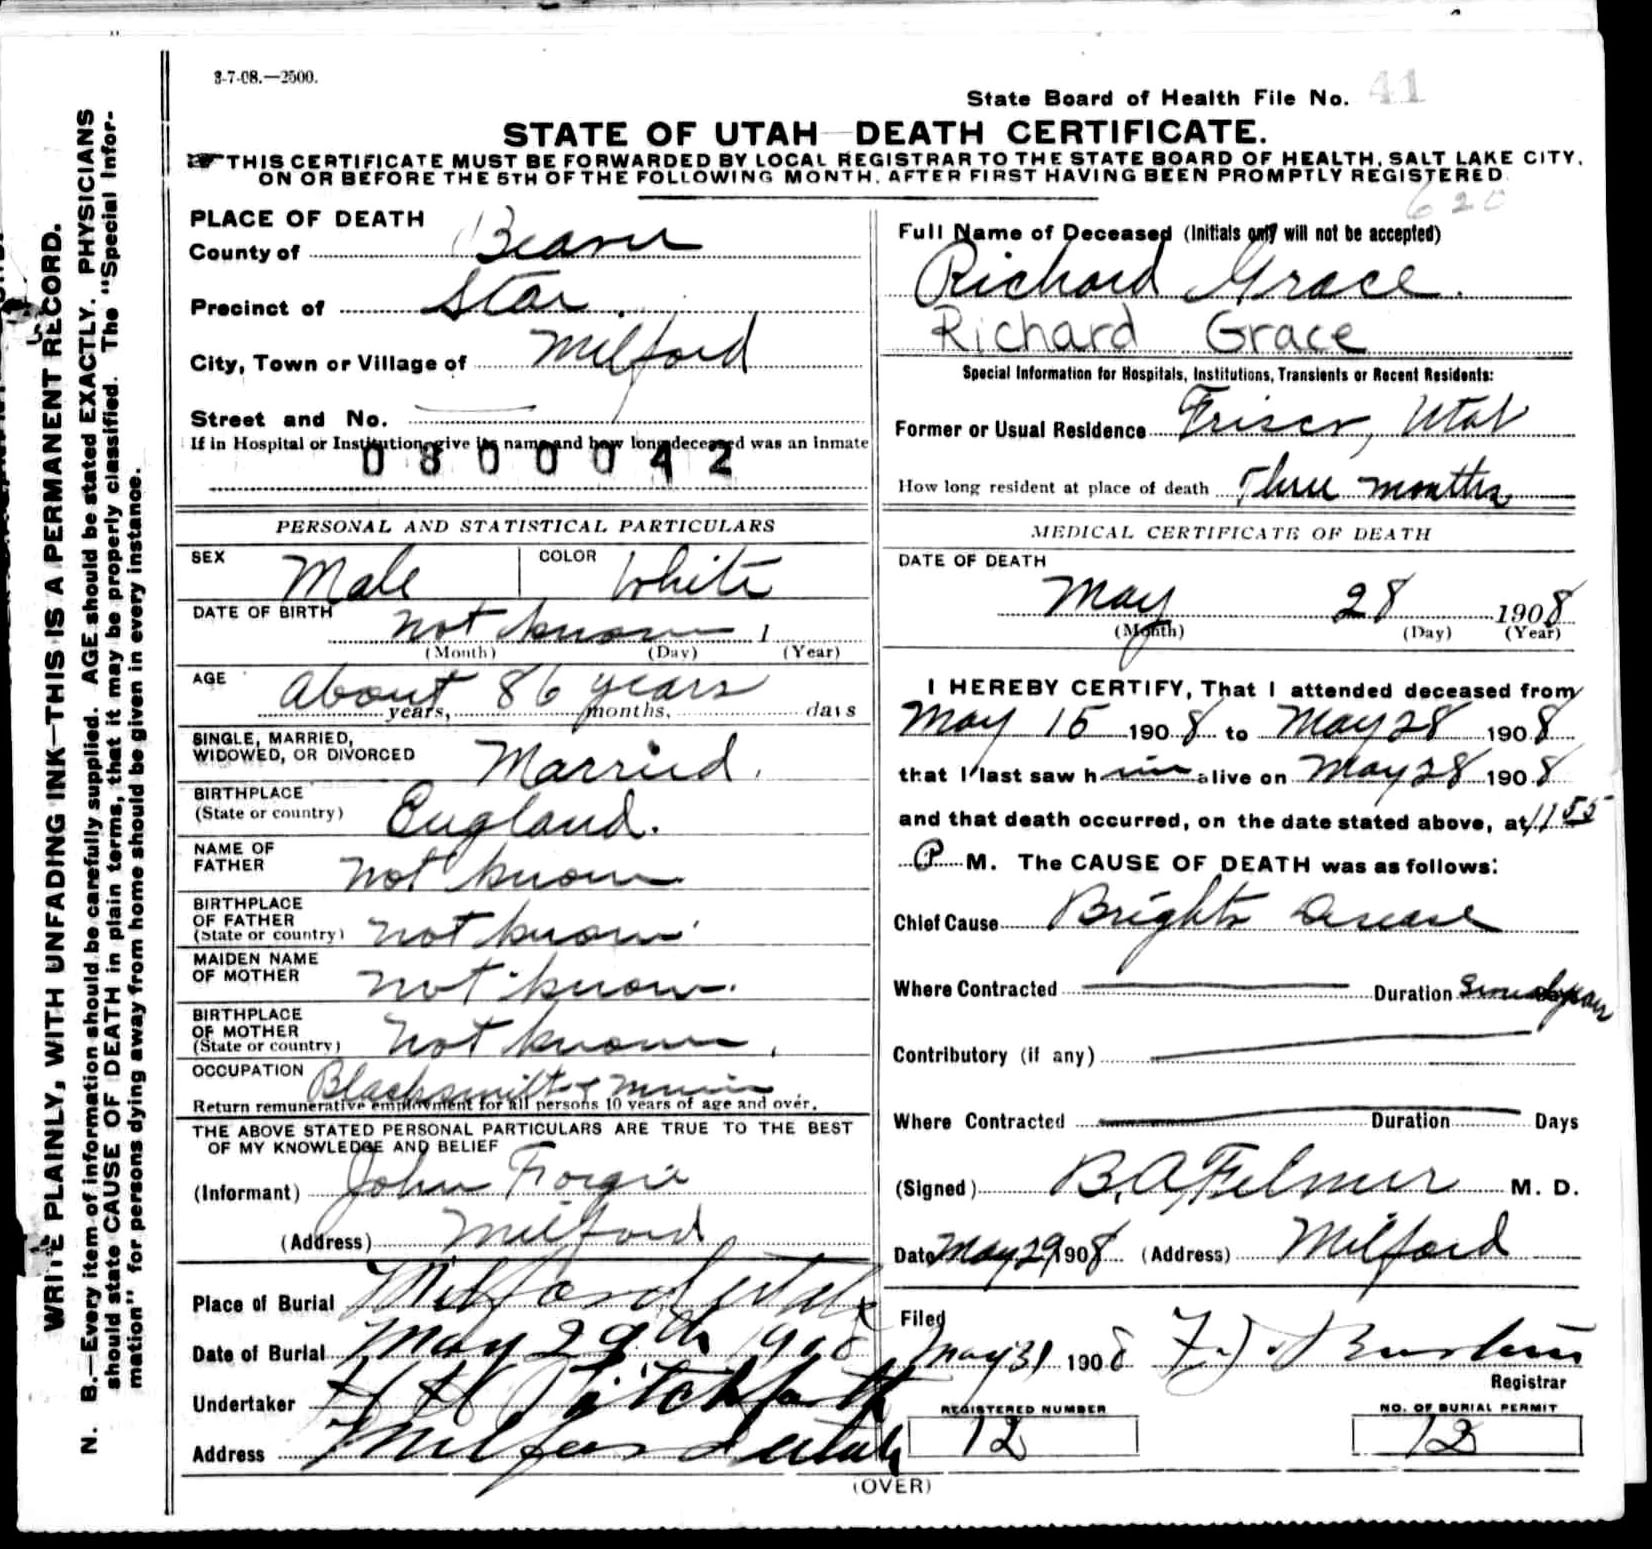 3-7-08.—2500.
State Board of Health File No. 41
STATE OF UTAH—DEATH CERTIFICATE.
THIS CERTIFICATE MUST BE FORWARDED BY LOCAL REGISTRAR TO THE STATE BOARD OF HEALTH, SALT LAKE CITY,
ON OR BEFORE THE 5TH OF THE FOLLOWING MONTH, AFTER FIRST HAVING BEEN PROMPTLY REGISTERED.
620
WRITE PLAINLY, WITH UNFADING INK—THIS IS A PERMANENT RECORD.
N. B.—Every item of information should be carefully supplied. AGE should be stated EXACTLY. PHYSICIANS
should state CAUSE OF DEATH in plain terms, that it may be properly classified. The "Special Infor-
mation" for persons dying away from home should be given in every instance.
PLACE OF DEATH
County of Beaver
Precinct of Star
City, Town or Village of Milford
Street and No.
If in Hospital or Institution, give its name and how long deceased was an inmate
0800042
PERSONAL AND STATISTICAL PARTICULARS
SEX Male COLOR White
DATE OF BIRTH not known 1
(Month) (Day) (Year)
AGE About 86 years
years, months, days
SINGLE, MARRIED,
WIDOWED, OR DIVORCED Married.
BIRTHPLACE
(State or country) England.
NAME OF
FATHER not known
BIRTHPLACE
OF FATHER
(State or country) not known
MAIDEN NAME
OF MOTHER not known.
BIRTHPLACE
OF MOTHER
(State or country) not known
OCCUPATION Blacksmith &
Return remunerative employment for all persons 10 years of age and over.
THE ABOVE STATED PERSONAL PARTICULARS ARE TRUE TO THE BEST
OF MY KNOWLEDGE AND BELIEF
(Informant) John Forgie
(Address) Milford
Place of Burial Milford Utah
Date of Burial May 29th 1908
Undertaker H H
Address Milford Utah
Full Name of Deceased (Initials only will not be accepted)
Richard Grace.
Richard Grace
Special Information for Hospitals, Institutions, Transients or Recent Residents:
Former or Usual Residence Frisco, Utah
How long resident at place of death Three months
MEDICAL CERTIFICATE OF DEATH
DATE OF DEATH
May 28 1908
(Month) (Day) (Year)
I HEREBY CERTIFY, That I attended deceased from
May 15 1908 to May 28 1908
that I last saw him alive on May 28 1908
and that death occurred, on the date stated above, at 11 55
P M. The CAUSE OF DEATH was as follows:
Chief Cause Brights Disease
Where Contracted Duration
Contributory (if any)
Where Contracted Duration Days
(Signed) B. A. M. D.
Date May 29 1908 (Address) Milford
Filed
May 31 1908
Registrar
REGISTERED NUMBER NO. OF BURIAL PERMIT
12 12
(OVER)